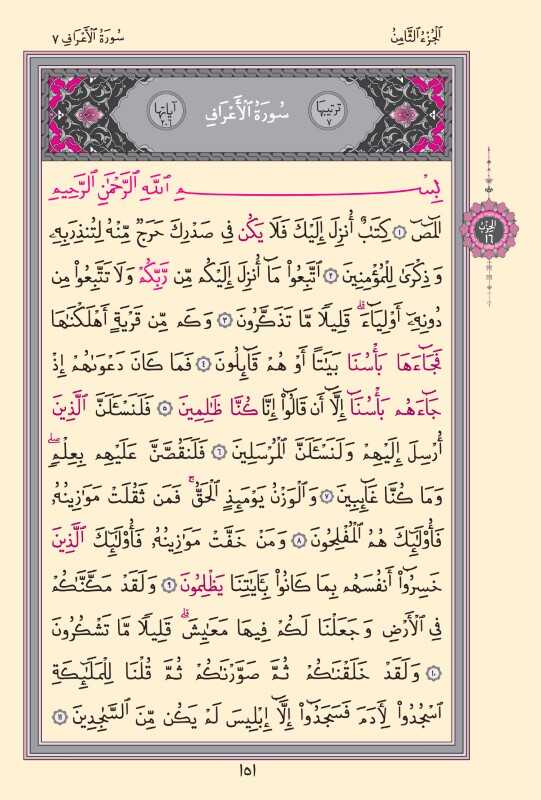 الجُزءُ الثَّامِنُ
سُورَةُ الأَعْرَافِ ٧
ترتيبها ٧
سُورَةُ الأَعْرَافِ
آياتها ٢٠٦
بِسْمِ اللَّهِ الرَّحْمَٰنِ الرَّحِيمِ
الحِزْبُ ١٦
الٓمٓصٓ ١ كِتَٰبٌ أُنزِلَ إِلَيْكَ فَلَا يَكُن فِي صَدْرِكَ حَرَجٌ مِّنْهُ لِتُنذِرَ بِهِۦ
وَذِكْرَىٰ لِلْمُؤْمِنِينَ ٢ ٱتَّبِعُوا۟ مَآ أُنزِلَ إِلَيْكُم مِّن رَّبِّكُمْ وَلَا تَتَّبِعُوا۟ مِن
دُونِهِۦٓ أَوْلِيَآءَ ۗ قَلِيلًا مَّا تَذَكَّرُونَ ٣ وَكَم مِّن قَرْيَةٍ أَهْلَكْنَٰهَا
فَجَآءَهَا بَأْسُنَا بَيَٰتًا أَوْ هُمْ قَآئِلُونَ ٤ فَمَا كَانَ دَعْوَىٰهُمْ إِذْ
جَآءَهُم بَأْسُنَآ إِلَّآ أَن قَالُوٓا۟ إِنَّا كُنَّا ظَٰلِمِينَ ٥ فَلَنَسْـَٔلَنَّ ٱلَّذِينَ
أُرْسِلَ إِلَيْهِمْ وَلَنَسْـَٔلَنَّ ٱلْمُرْسَلِينَ ٦ فَلَنَقُصَّنَّ عَلَيْهِم بِعِلْمٍ ۖ
وَمَا كُنَّا غَآئِبِينَ ٧ وَٱلْوَزْنُ يَوْمَئِذٍ ٱلْحَقُّ ۚ فَمَن ثَقُلَتْ مَوَٰزِينُهُۥ
فَأُو۟لَٰٓئِكَ هُمُ ٱلْمُفْلِحُونَ ٨ وَمَنْ خَفَّتْ مَوَٰزِينُهُۥ فَأُو۟لَٰٓئِكَ ٱلَّذِينَ
خَسِرُوٓا۟ أَنفُسَهُم بِمَا كَانُوا۟ بِـَٔايَٰتِنَا يَظْلِمُونَ ٩ وَلَقَدْ مَكَّنَّٰكُمْ
فِي ٱلْأَرْضِ وَجَعَلْنَا لَكُمْ فِيهَا مَعَٰيِشَ ۗ قَلِيلًا مَّا تَشْكُرُونَ
١٠ وَلَقَدْ خَلَقْنَٰكُمْ ثُمَّ صَوَّرْنَٰكُمْ ثُمَّ قُلْنَا لِلْمَلَٰٓئِكَةِ
ٱسْجُدُوا۟ لِـَٔادَمَ فَسَجَدُوٓا۟ إِلَّآ إِبْلِيسَ لَمْ يَكُن مِّنَ ٱلسَّٰجِدِينَ ١١
١٥١